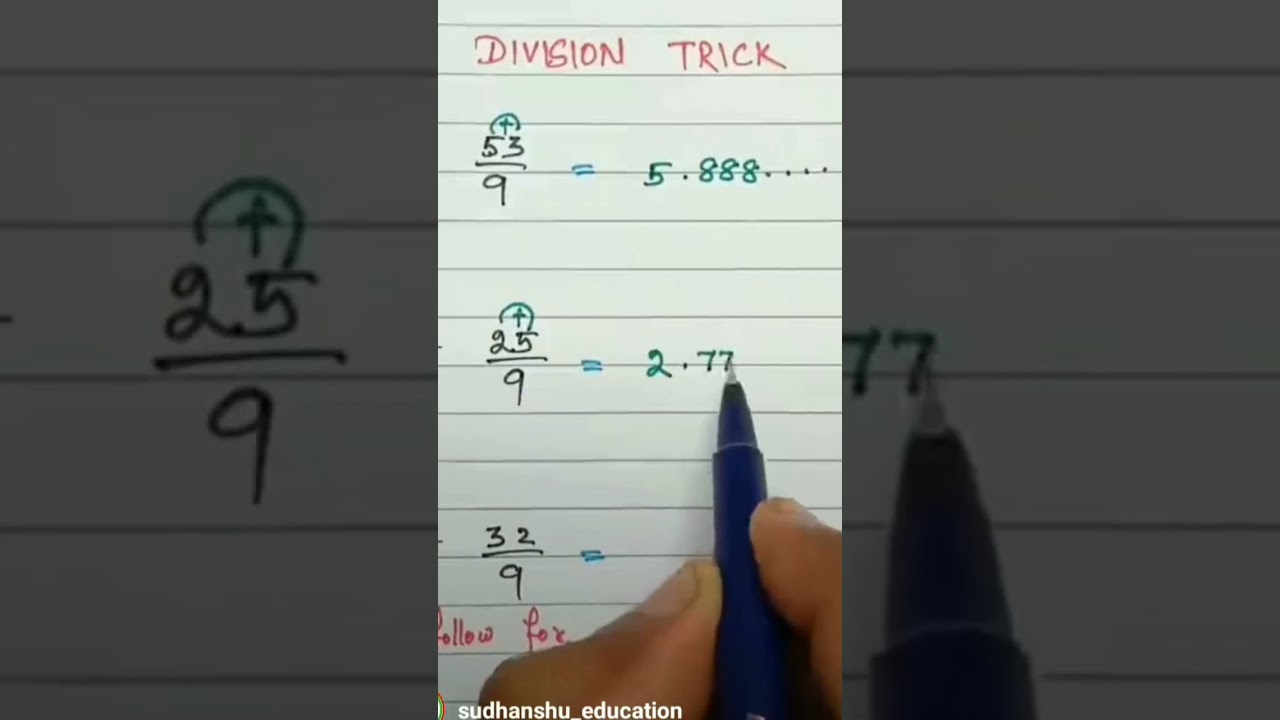 DIVISION TRICK
53/9 = 5.888....
25/9 = 2.77
32/9 =
follow for
sudhanshu_education